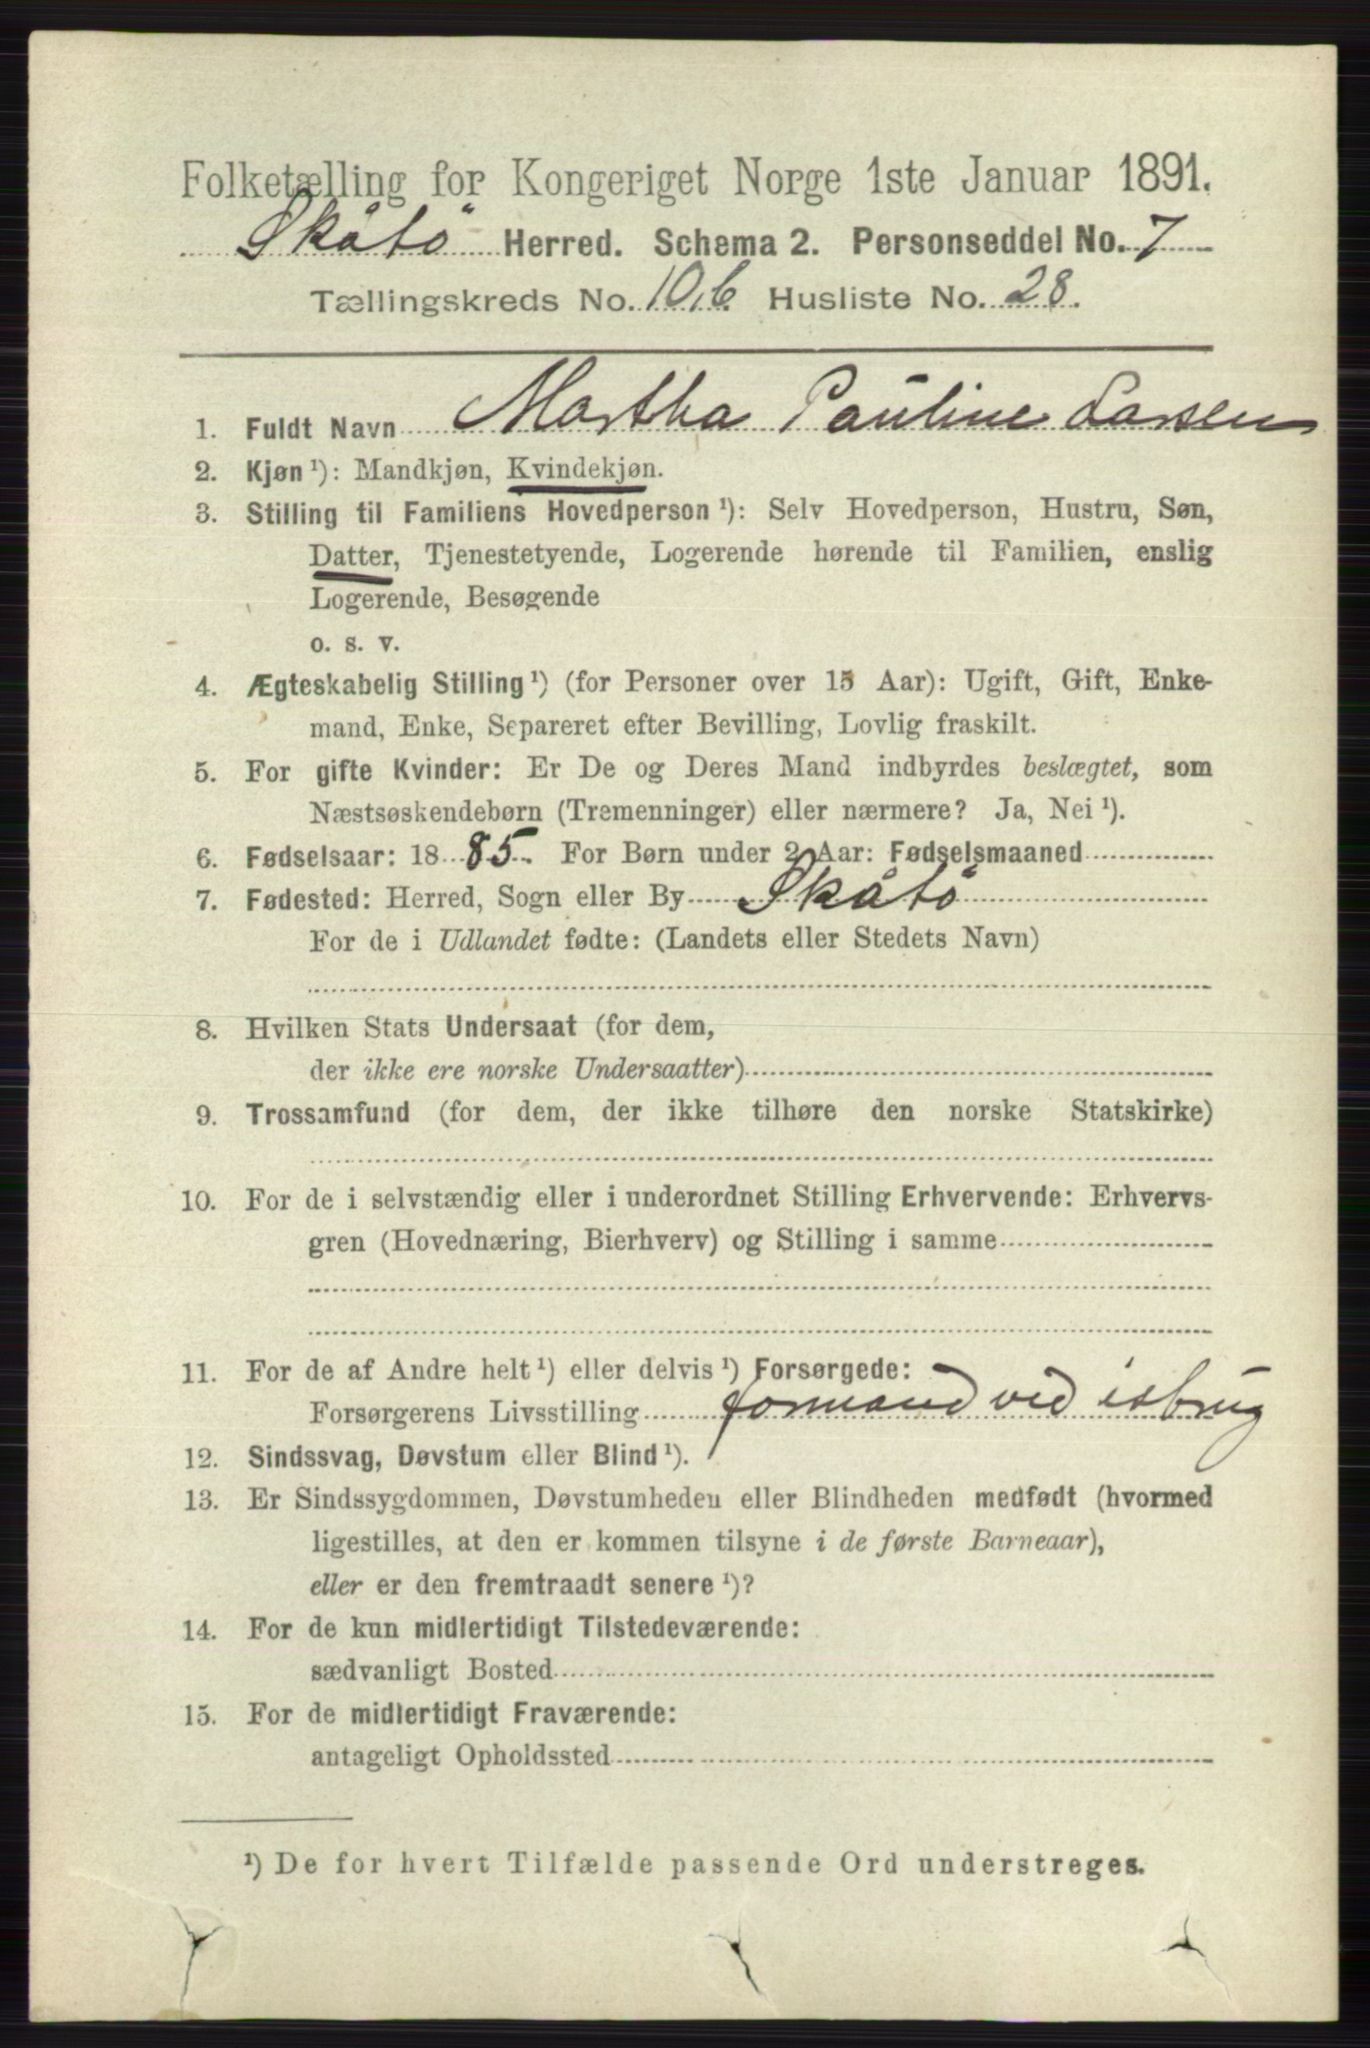 Folketælling for Kongeriget Norge 1ste Januar 1891.
Skåtö Herred. Schema 2. Personseddel No. 7
Tællingskreds No. 10,b Husliste No. 28.
1. Fuldt Navn Martha Pauline Larsen
2. Kjøn ¹): Mandkjøn, Kvindekjøn.
3. Stilling til Familiens Hovedperson ¹): Selv Hovedperson, Hustru, Søn,
Datter, Tjenestetyende, Logerende hørende til Familien, enslig
Logerende, Besøgende
o. s. v.
4. Ægteskabelig Stilling ¹) (for Personer over 15 Aar): Ugift, Gift, Enke-
mand, Enke, Separeret efter Bevilling, Lovlig fraskilt.
5. For gifte Kvinder: Er De og Deres Mand indbyrdes beslægtet, som
Næstsøskendebørn (Tremenninger) eller nærmere? Ja, Nei ¹).
6. Fødselsaar: 1885. For Børn under 2 Aar: Fødselsmaaned
7. Fødested: Herred, Sogn eller By Skåtö
For de i Udlandet fødte: (Landets eller Stedets Navn)
8. Hvilken Stats Undersaat (for dem,
der ikke ere norske Undersaatter)
9. Trossamfund (for dem, der ikke tilhøre den norske Statskirke)
10. For de i selvstændig eller i underordnet Stilling Erhvervende: Erhvervs-
gren (Hovednæring, Bierhverv) og Stilling i samme
11. For de af Andre helt ¹) eller delvis ¹) Forsørgede:
Forsørgerens Livsstilling formand ved isbrug
12. Sindssvag, Døvstum eller Blind ¹).
13. Er Sindssygdommen, Døvstumheden eller Blindheden medfødt (hvormed
ligestilles, at den er kommen tilsyne i de første Barneaar),
eller er den fremtraadt senere ¹)?
14. For de kun midlertidigt Tilstedeværende:
sædvanligt Bosted
15. For de midlertidigt Fraværende:
antageligt Opholdssted
¹) De for hvert Tilfælde passende Ord understreges.